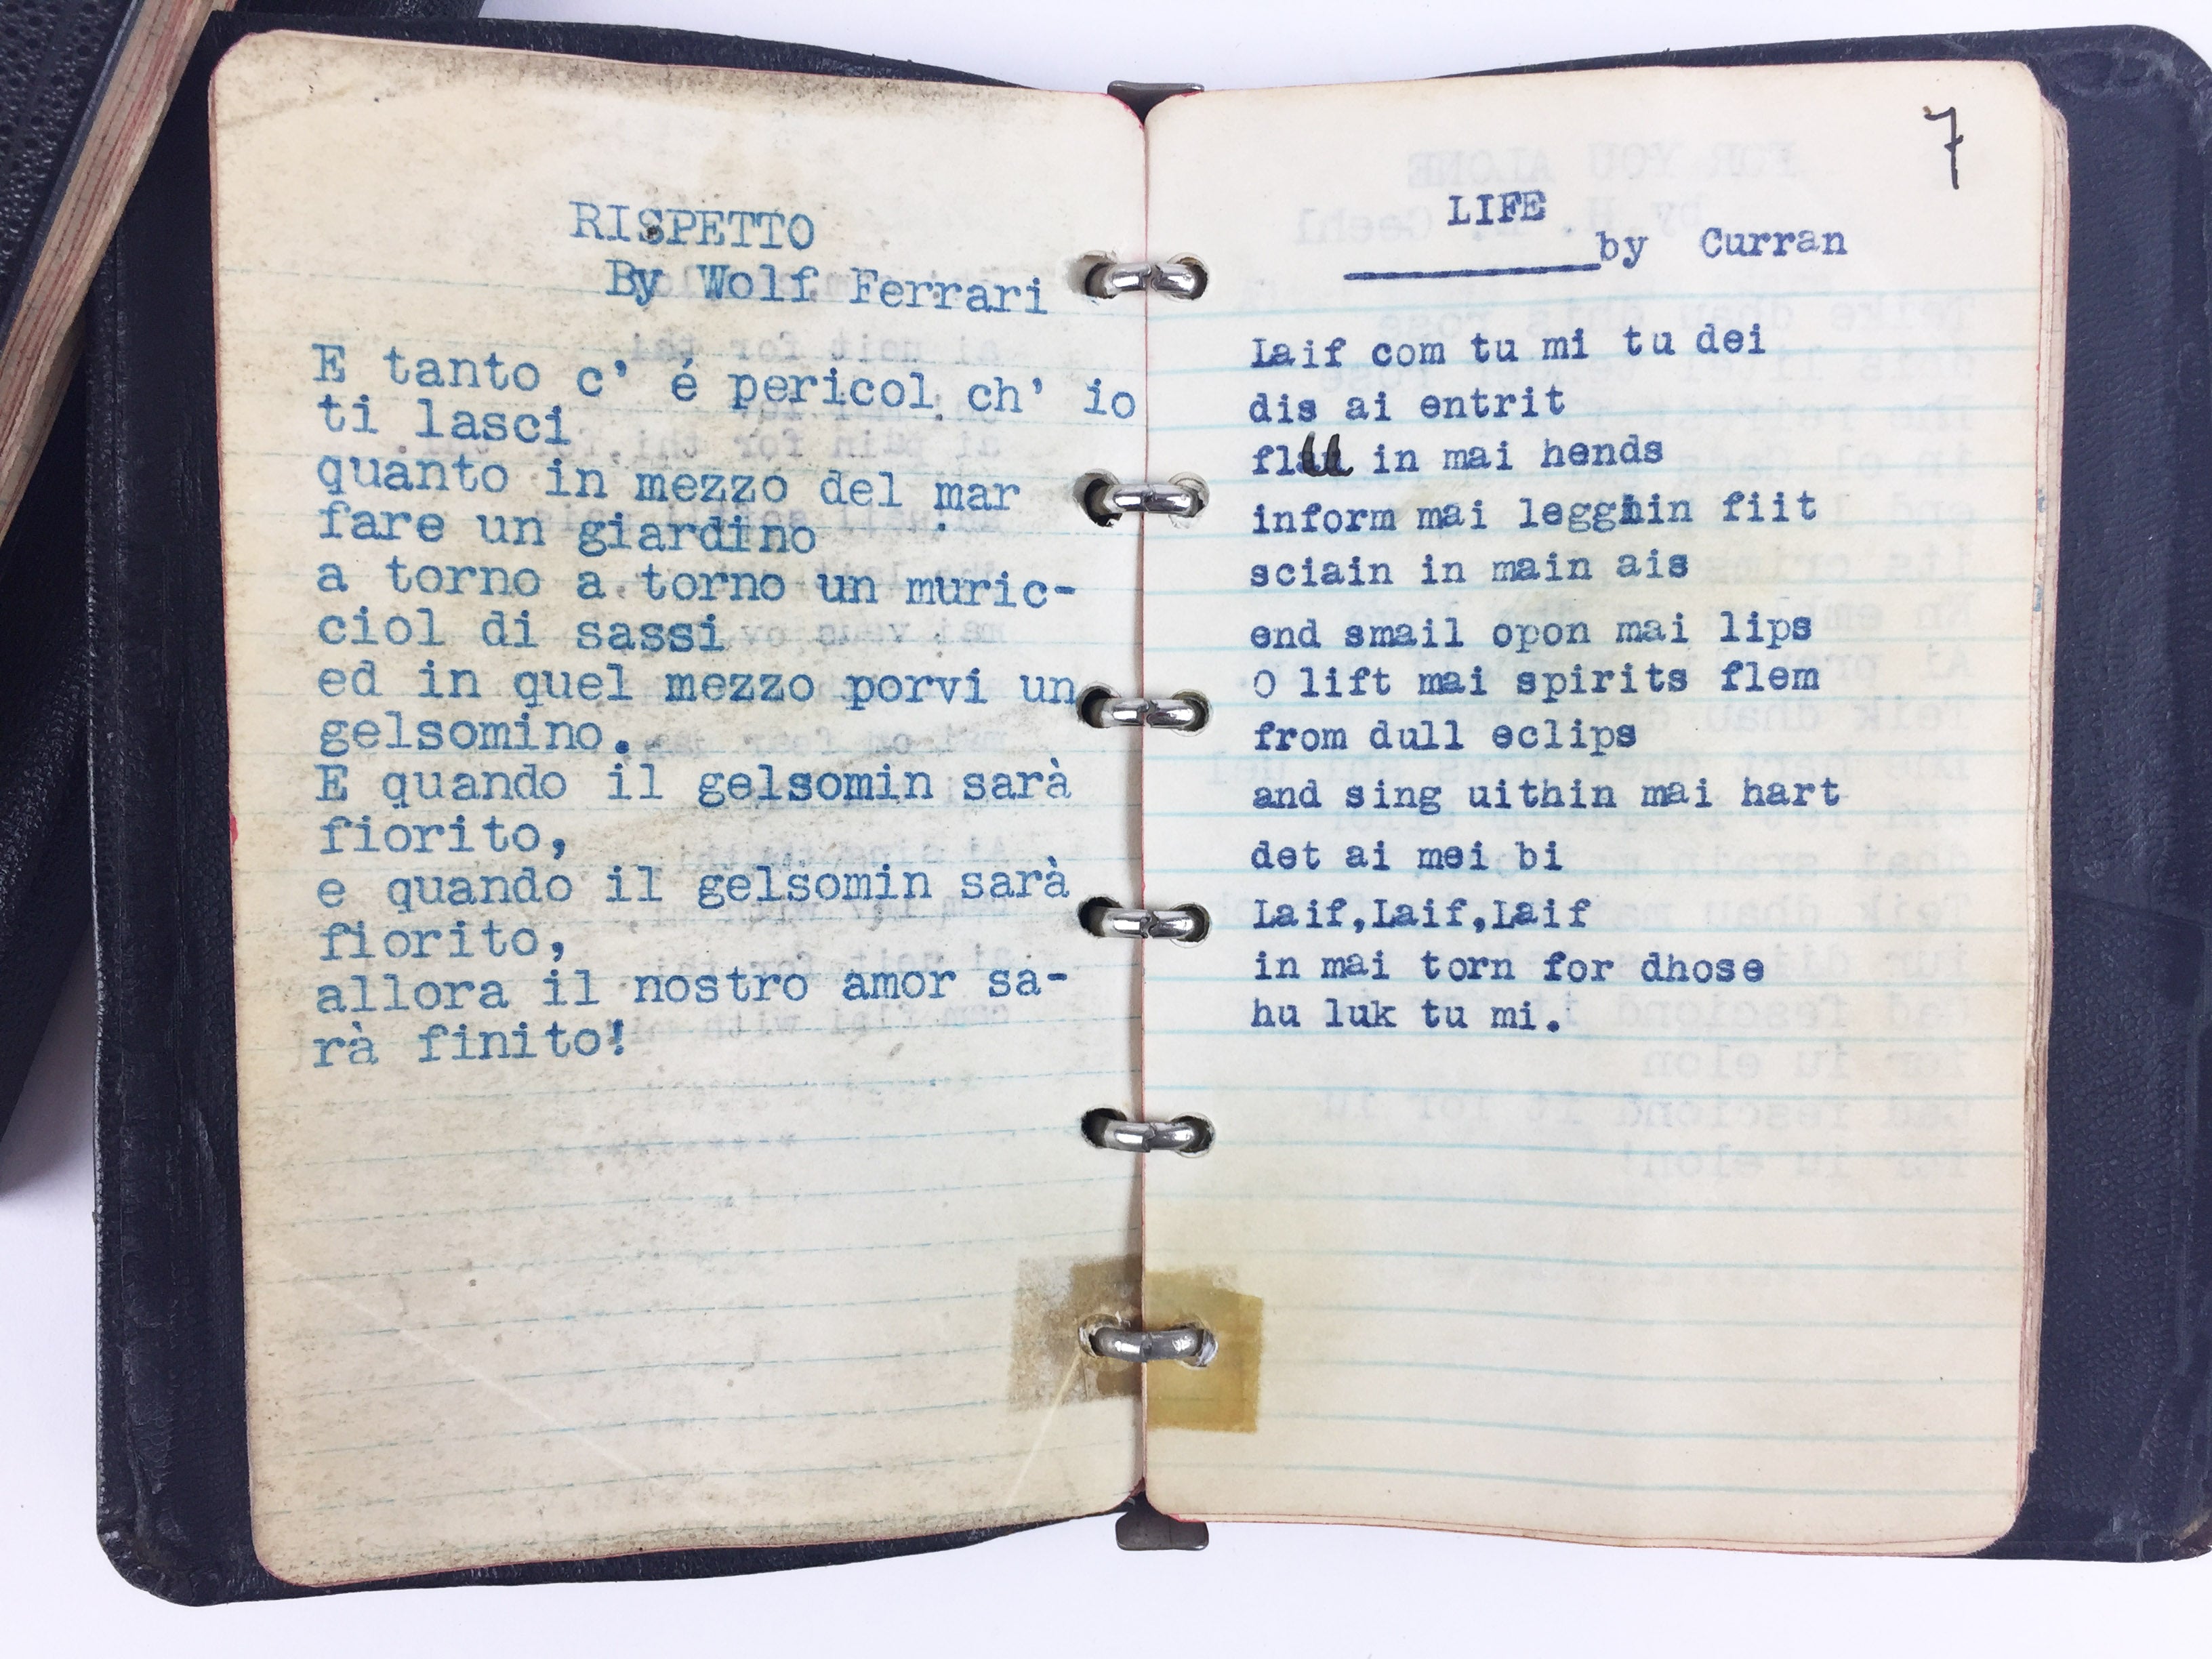 RISPETTO
By Wolf Ferrari
E tanto c' é pericol ch' io
ti lasci
quanto in mezzo del mar
fare un giardino
a torno a torno un muric-
ciol di sassi
ed in quel mezzo porvi un
gelsomino.
E quando il gelsomin sarà
fiorito,
e quando il gelsomin sarà
fiorito,
allora il nostro amor sa-
rà finito!
7
LIFE
by Curran
Laif com tu mi tu dei
dis ai entrit
in mai hends
inform mai fiit
sciain in main ais
end smail opon mai lips
O lift mai spirits flem
from dull eclips
and sing uithin mai hart
det ai mei bi
Laif,Laif,Laif
in mai torn for dhose
hu luk tu mi.